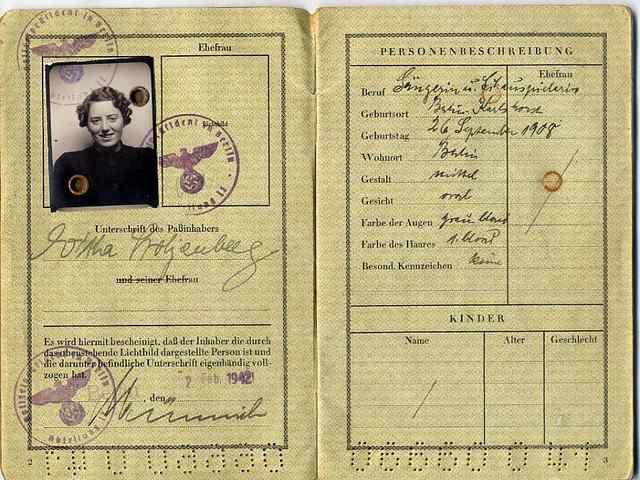 Ehefrau
Polizeipräsident in Berlin
Unterschrift des Paßinhabers
und seiner Ehefrau
Es wird hiermit bescheinigt, daß der Inhaber die durch
das obenstehende Lichtbild dargestellte Person ist und
die darunter befindliche Unterschrift eigenhändig voll-
zogen hat.
, den 2. Feb. 1942
Polizeipräsident in Berlin
Abteilung II
2
PERSONENBESCHREIBUNG
Ehefrau
Beruf Sängerin u. Schauspielerin
Geburtsort Berlin Karlshorst
Geburtstag 26 September 1908
Wohnort Berlin
Gestalt mittel
Gesicht oval
Farbe der Augen
Farbe des Haares blond
Besond. Kennzeichen keine
KINDER
Name Alter Geschlecht
3